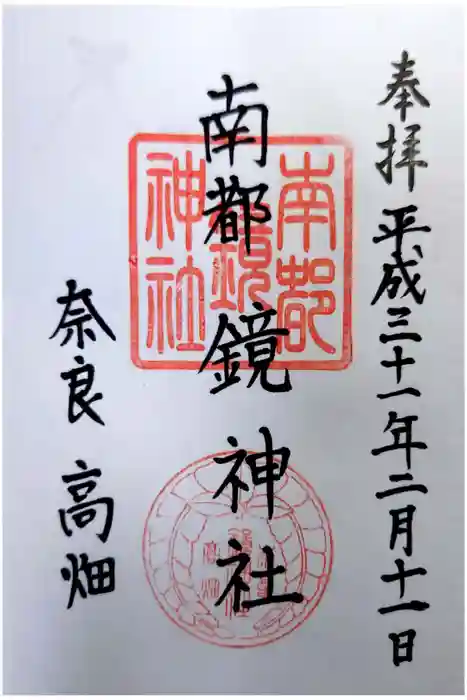 奉拝 平成三十一年二月十一日
南都鏡神社
奈良 高畑
南都
鏡
神社